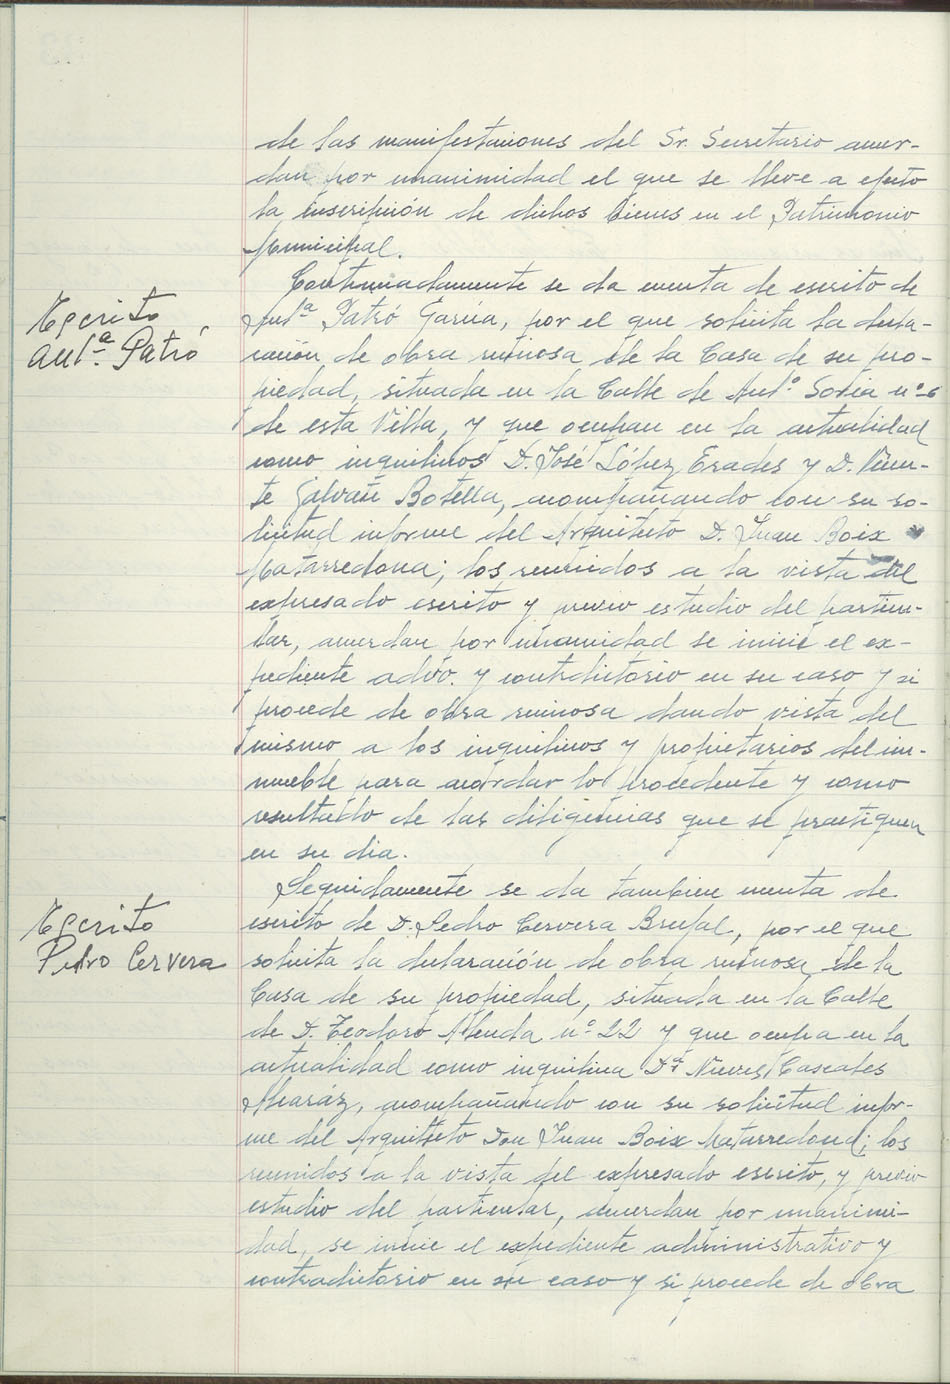 de las manifestaciones del Sr. Secretario acuer-
dan por unanimidad el que se lleve a efecto
la inscripción de dichos bienes en el Patrimonio
Municipal.
Continuadamente se da cuenta de escrito de
Escrito
Antª Patró
Antª Patró García, por el que solicita la decla-
ración de obra ruinosa de la Casa de su pro-
piedad, situada en la Calle de Antº Soria nº 6
de esta Villa, y que ocupan en la actualidad
como inquilinos D. José López Erades y D. Vicen-
te Galvañ Botella, acompañando con su so-
licitud informe del Arquitecto D. Juan Boix
Matarredona; los reunidos a la vista del
expresado escrito y previo estudio del particu-
lar, acuerdan por unanimidad se inicie el ex-
pediente advo. y contradictorio en su caso y si
procede de obra ruinosa dando vista del
mismo a los inquilinos y propietarios del in-
mueble para acordar lo procedente y como
resultado de las diligencias que se practiquen
en su dia.
Seguidamente se da tambien cuenta de
Escrito
Pedro Cervera
escrito de D. Pedro Cervera Brufal, por el que
solicita la declaración de obra ruinosa de la
Casa de su propiedad, situada en la Calle
de D. Teodoro Alenda nº 22 y que ocupa en la
actualidad como inquilina Dª Nieves Cascales
Alcaráz, acompañando con su solicitud infor-
me del Arquitecto Don Juan Boix Matarredona; los
reunidos a la vista del expresado escrito, y previo
estudio del particular, acuerdan por unanimi-
dad, se inicie el expediente administrativo y
contradictorio en su caso y si procede de obra